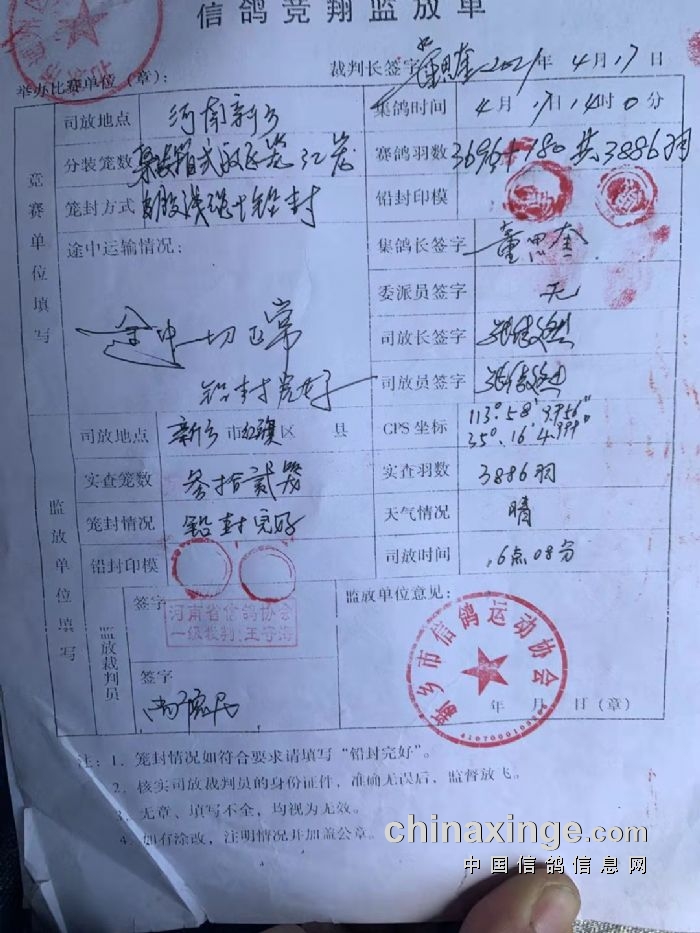 信鸽竞翔监放单
举办比赛单位（章）： 裁判长签字 董思奎 2021年 4月17日
竞赛单位填写
司放地点 河南新乡 集鸽时间 4月17日14时0分
分装笼数 集装箱式放飞笼 32笼 赛鸽羽数 3696+180 共3886羽
笼封方式 铅封 铅封印模
途中运输情况： 集鸽长签字 董思奎
委派员签字 无
途中一切正常 司放长签字
铅封完好 司放员签字
监放单位填写
司放地点 新乡市红旗区 县 GPS 坐标 113°58′3956″ 35°16′4999″
实查笼数 叁拾贰笼 实查羽数 3886羽
笼封情况 铅封完好 天气情况 晴
铅封印模 司放时间 6点08分
监放裁判员
签字 监放单位意见：
河南省信鸽协会
一级裁判：王守海
新乡市信鸽运动协会
签字
年 月 日（章）
注：1．笼封情况如符合要求请填写“铅封完好”。
2．核实司放裁判员的身份证件，准确无误后，监督放飞。
3．无章、填写不全，均视为无效。
4．如有涂改，注明情况并加盖公章。
chinaxinge.com
中国信鸽信息网